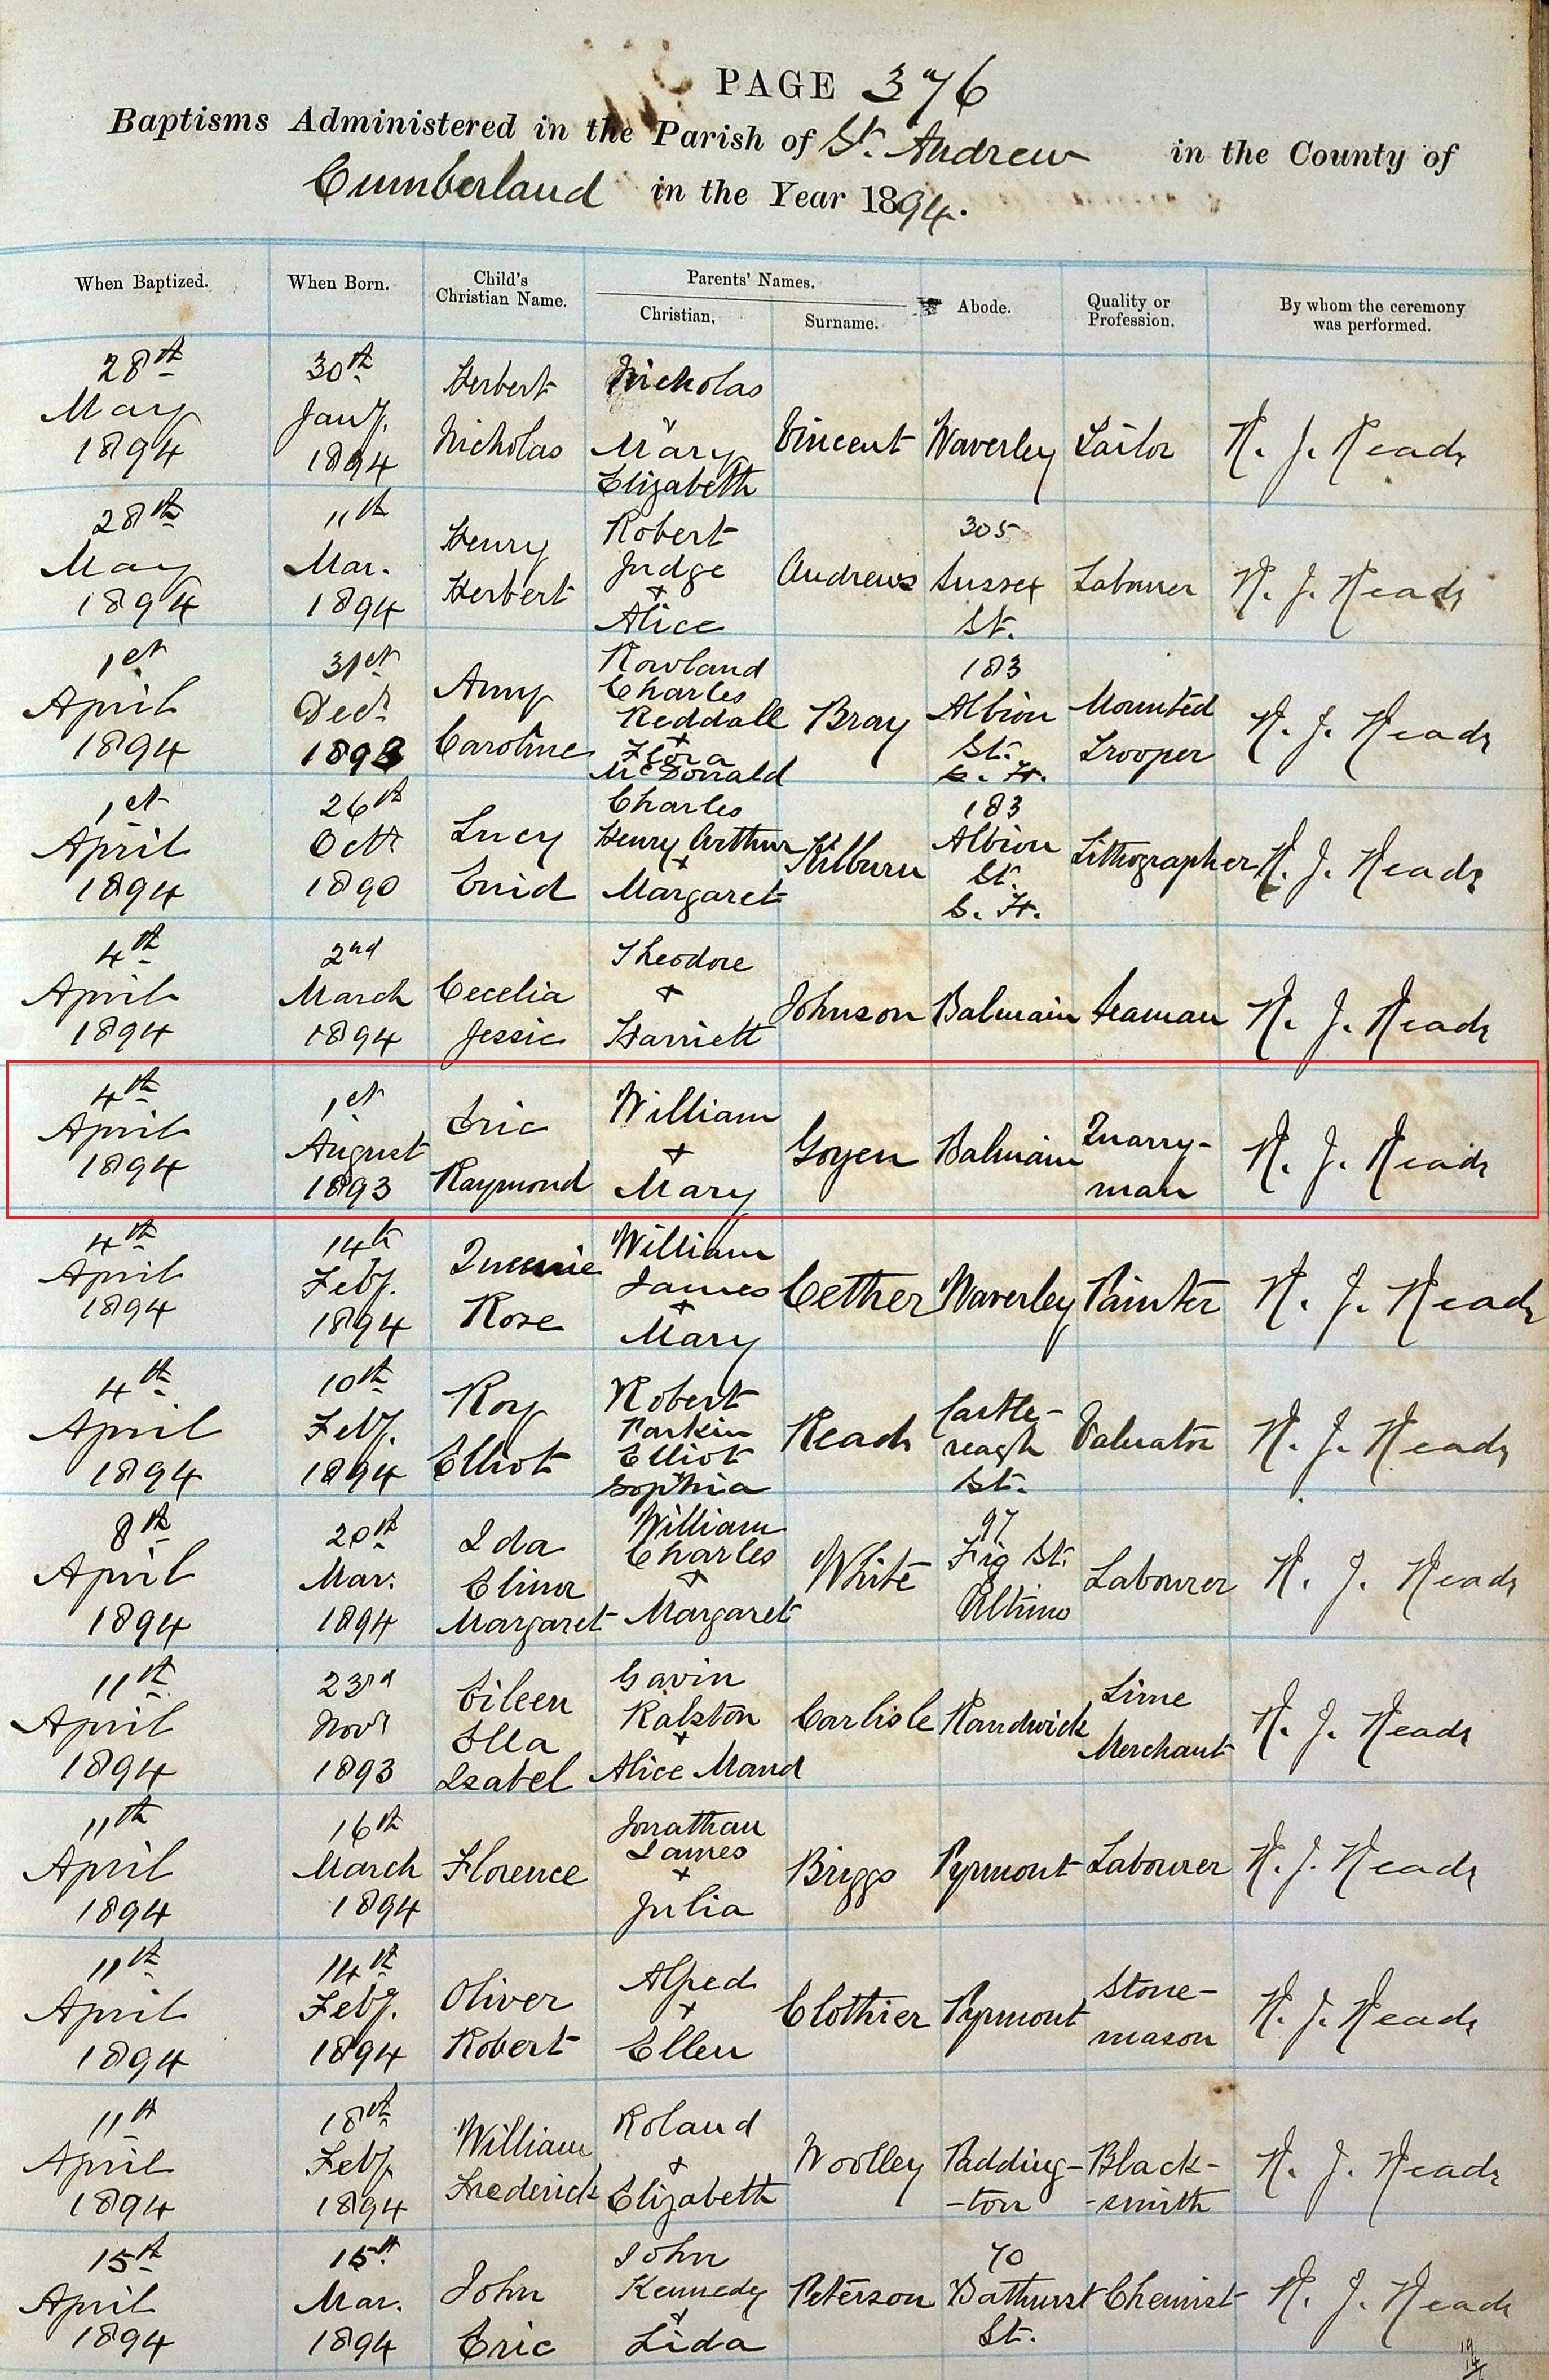 PAGE 376
Baptisms Administered in the Parish of St. Andrew in the County of
Cumberland in the Year 1894.
When Baptized. When Born. Child's Christian Name. Parents' Names. Christian. Surname. Abode. Quality or Profession. By whom the ceremony was performed.
28th May 1894 30th Jany. 1894 Herbert Nicholas Nicholas Mary Elizabeth Vincent Waverley Tailor N. J. Heads
28th May 1894 11th Mar. 1894 Henry Herbert Robert Judge + Alice Andrews 305 Sussex St. Labourer N. J. Heads
1st April 1894 31st Decr 1893 Amy Caroline Rowland Charles Reddall + Flora McDonald Bray 183 Albion St. S. H. Mounted Trooper N. J. Heads
1st April 1894 26th Octr 1890 Lucy Enid Charles Henry Arthur + Margaret Kilburn 183 Albion St. S. H. Lithographer N. J. Heads
4th April 1894 2nd March 1894 Cecelia Jessie Theodore + Harriett Johnson Balmain Seaman N. J. Heads
4th April 1894 1st August 1893 Eric Raymond William + Mary Goyen Balmain Quarry-man N. J. Heads
4th April 1894 14th Feby. 1894 Queenie Rose William James + Mary Cether Waverley Painter N. J. Heads
4th April 1894 10th Feby. 1894 Roy Elliot Robert Parkin Elliot + Sophia Reach Castle-reagh St. Valuator N. J. Heads
8th April 1894 20th Mar. 1894 Ida Elinor Margaret William Charles + Margaret White 97 Fig St. Ultimo Labourer N. J. Heads
11th April 1894 23rd Novr 1893 Eileen Ella Isabel Gavin Ralston + Alice Maud Carlisle Randwick Lime Merchant N. J. Heads
11th April 1894 16th March 1894 Florence Jonathan James + Julia Briggs Pyrmont Labourer N. J. Heads
11th April 1894 14th Feby. 1894 Oliver Robert Alfred + Ellen Clothier Pyrmont Stone-mason N. J. Heads
11th April 1894 18th Feby 1894 William Frederick Roland + Elizabeth Woolley Padding-ton Black-smith N. J. Heads
15th April 1894 15th Mar. 1894 John Eric John Kennedy + Lida Peterson 70 Bathurst St. Chemist N. J. Heads